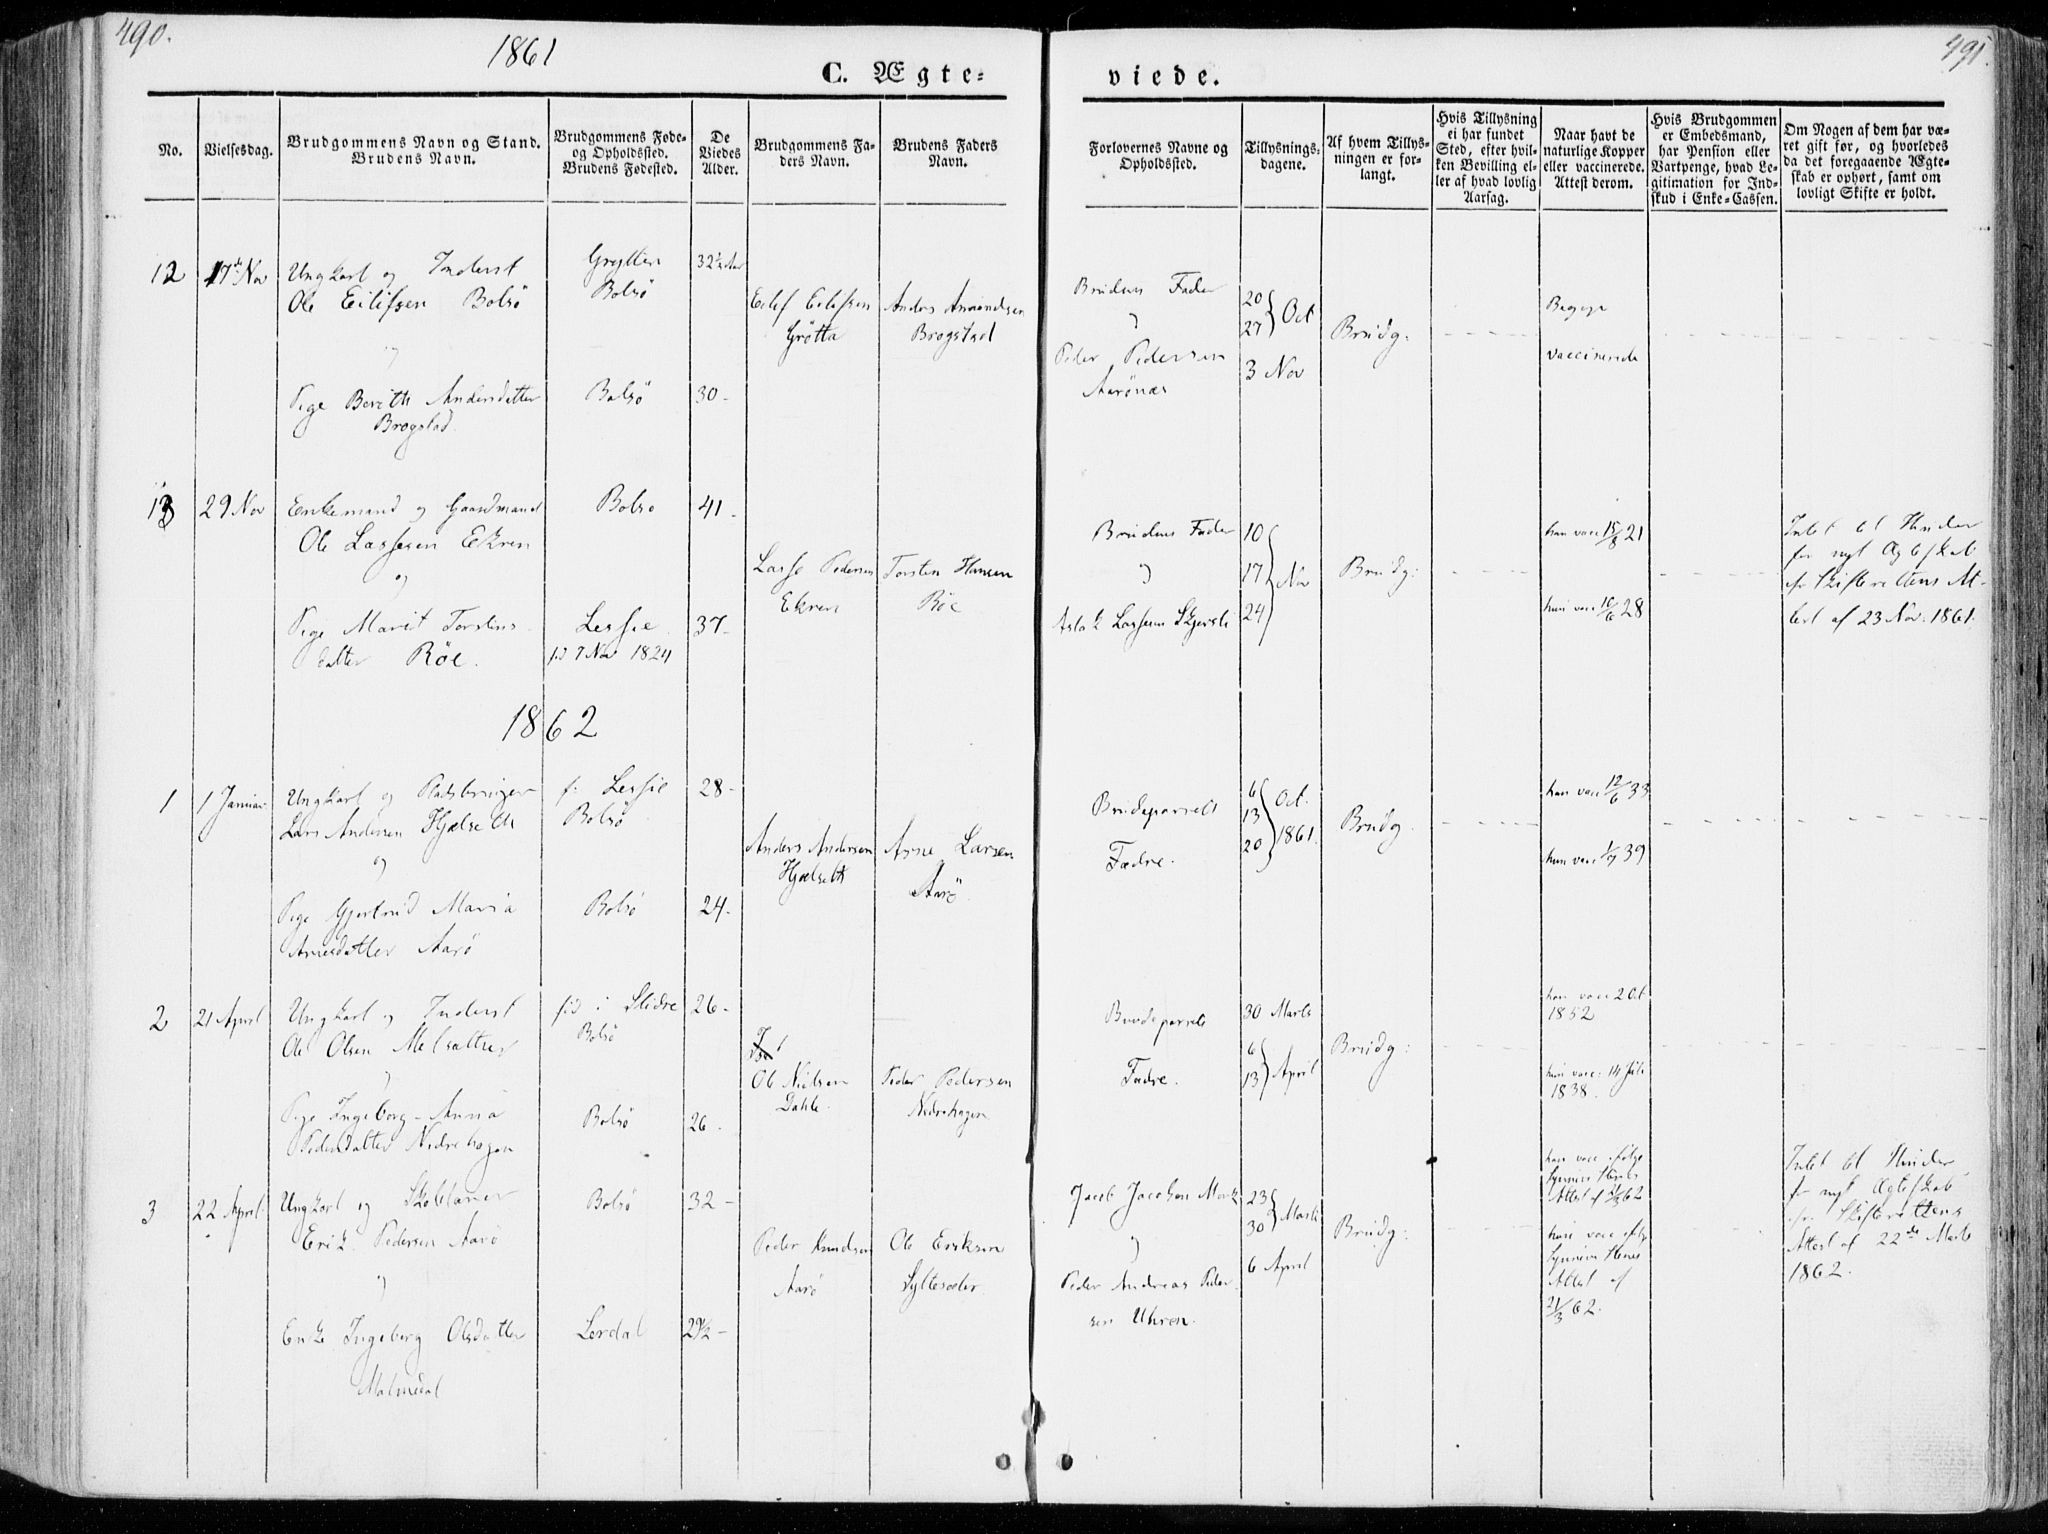 490.
1861
C. Ægte-
viede.
491.
No.
Vielsesdag.
Brudgommens Navn og Stand.
Brudens Navn.
Brudgommens Føde-
og Opholdssted.
Brudens Fødested.
De
Viedes
Alder.
Brudgommens Fa-
ders Navn.
Brudens Faders
Navn.
Forlovernes Navne og
Opholdssted.
Tillysnings-
dagene.
Af hvem Tillys-
ningen er for-
langt.
Hvis Tillysning
ei har fundet
Sted, efter hvil-
ken Bevilling el-
ler af hvad lovlig
Aarsag.
Naar havt de
naturlige Kopper
eller vaccinerede.
Attest derom.
Hvis Brudgommen
er Embedsmand,
har Pension eller
Vartpenge, hvad Le-
gitimation for Ind-
skud i Enke-Cassen.
Om Nogen af dem har væ-
ret gift før, og hvorledes
da det foregaaende Ægte-
skab er ophørt, samt om
lovligt Skifte er holdt.
12
17de Nov
Ungkarl og Inderst
Ole Eilifsen Bolsö
og
Pige Berith Andersdatter
Brogstad.
Grytten
Bolsö
Bolsö
32½ Aar
30 -
Eilif Eilifsen
Grötta
Anders Amundsen
Brogstad
Brudens Fader
og
Peder Pedersen
Aarönæs
20
27 Oct
3 Nov
Brudg:
Begge
vaccinerede
13
29 Nov
Enkemand og Gaardmand
Ole Lassesen Ekren
og
Pige Marit Torstens-
datter Röe.
Bolsö
Lessie
fd 7 Nov 1824
41 -
37 -
Lasse Pedersen
Ekren
Torsten Hansen
Röe
Brudens Fader
og
Aslak Lassesen Skjersli
10
17 Nov
24
Brudg:
han vacc 15/8 21
hun vacc 10/6 28
Intet til Hinder
for nyt Ægteskab
efr Skifterettens At-
test af 23 Nov. 1861.
1862
1
1 Januar
Ungkarl og Pladsbruger
Lars Andersen Hjelseth
og
Pige Gjertrud Maria
Arnesdatter Aarö
f: Lessie
Bolsö
Bolsö
28 -
24 -
Anders Andersen
Hjelseth
Arne Larsen
Aarö
Brudeparrets
Fædre.
6
13 Oct.
20 1861.
Brudg.
han vacc 12/6 33
hun vacc 1/7 39
2
21 April
Ungkarl og Inderst
Ole Olsen Melsætter
og
Pige Ingeborg-Anna
Pedersdatter Nedrehagen
fd i Slidre
Bolsö
Bolsö
26 -
26 -
Ole Nielsen
Dahle.
Peder Pedersen
Nedrehagen
Brudeparrets
Fædre.
30 Marts
6
13 April
Brudg:
han vacc 20
1852
hun vacc: 14 Juli
1838.
3
22 April
Ungkarl og Skolelærer
Erik Pedersen Aarö
og
Enke Ingeborg Olsdatter
Malmedal
Bolsö
Lerdal
32 -
29½ -
Peder Knudsen
Aarö
Ole Eriksen
Syltesæter
Jacob Jacobsen Mork
og
Peder Andreas Peder-
sen Uhren.
23
30 Marts
6 April
Brudg:
han vacc ifølge
Attest af 62
hun vacc ifølge
Attest af
21/3 62.
Intet til Hinder
for nyt Ægteskab
efr. Skifterettens
Attest af 22de Marts
1862.